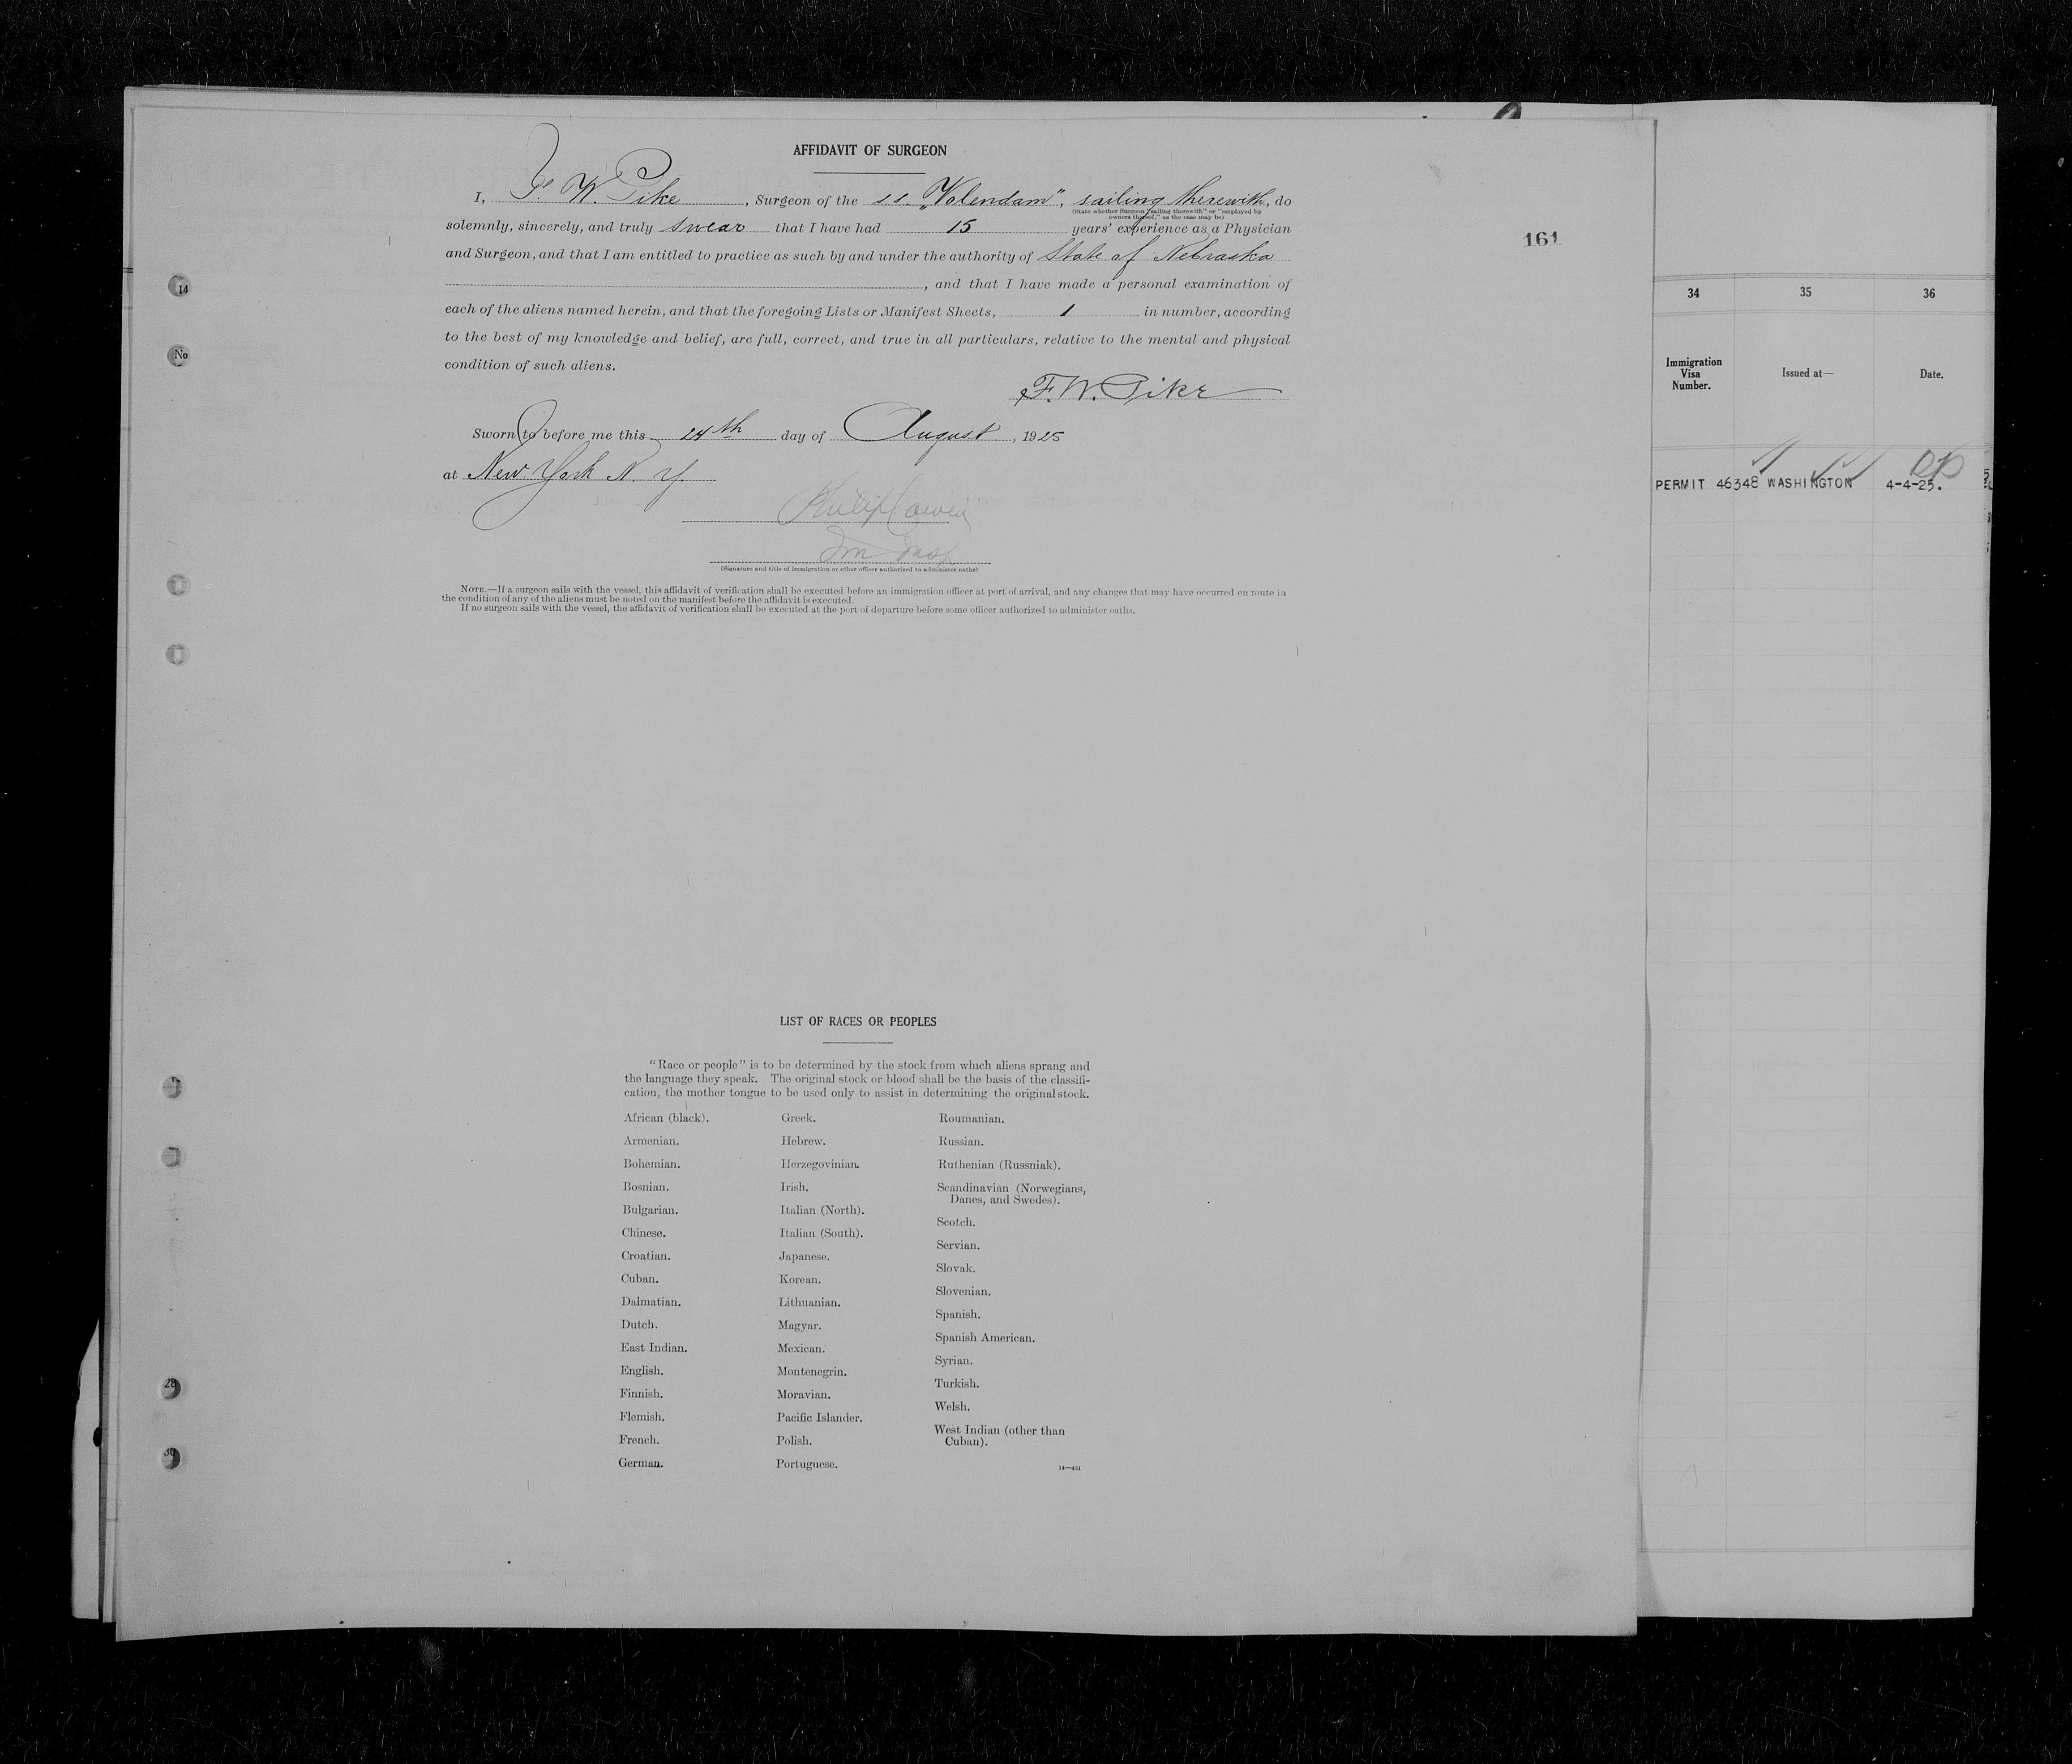 AFFIDAVIT OF SURGEON
I, F. W. Pike, Surgeon of the s.s. „Volendam", sailing therewith, do
(State whether Surgeon "sailing therewith" or "employed by
owners thereof," as the case may be)
solemnly, sincerely, and truly swear that I have had 15 years' experience as a Physician
and Surgeon, and that I am entitled to practice as such by and under the authority of State of Nebraska
, and that I have made a personal examination of
each of the aliens named herein, and that the foregoing Lists or Manifest Sheets, 1 in number, according
to the best of my knowledge and belief, are full, correct, and true in all particulars, relative to the mental and physical
condition of such aliens.
F. W. Pike
Sworn to before me this 24th day of August, 1925
at New York N. Y.
Philip Cowen
Im Insp
(Signature and title of immigration or other officer authorized to administer oaths)
NOTE.—If a surgeon sails with the vessel, this affidavit of verification shall be executed before an immigration officer at port of arrival, and any changes that may have occurred en route in
the condition of any of the aliens must be noted on the manifest before the affidavit is executed.
If no surgeon sails with the vessel, the affidavit of verification shall be executed at the port of departure before some officer authorized to administer oaths.
161
14
No
28
30
LIST OF RACES OR PEOPLES
"Race or people" is to be determined by the stock from which aliens sprang and
the language they speak. The original stock or blood shall be the basis of the classifi-
cation, the mother tongue to be used only to assist in determining the original stock.
African (black).
Armenian.
Bohemian.
Bosnian.
Bulgarian.
Chinese.
Croatian.
Cuban.
Dalmatian.
Dutch.
East Indian.
English.
Finnish.
Flemish.
French.
German.
Greek.
Hebrew.
Herzegovinian.
Irish.
Italian (North).
Italian (South).
Japanese.
Korean.
Lithuanian.
Magyar.
Mexican.
Montenegrin.
Moravian.
Pacific Islander.
Polish.
Portuguese.
Roumanian.
Russian.
Ruthenian (Russniak).
Scandinavian (Norwegians,
Danes, and Swedes).
Scotch.
Servian.
Slovak.
Slovenian.
Spanish.
Spanish American.
Syrian.
Turkish.
Welsh.
West Indian (other than
Cuban).
14—431
34 35 36
Immigration
Visa
Number.
Issued at—
Date.
PERMIT 46348 WASHINGTON 4-4-25.